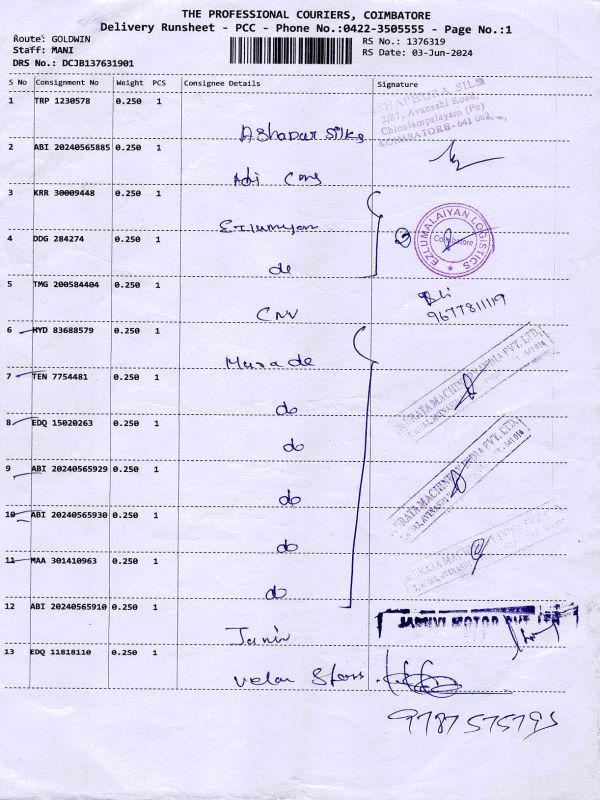 THE PROFESSIONAL COURIERS, COIMBATORE
Delivery Runsheet - PCC - Phone No.:0422-3505555 - Page No.:1
Route: GOLDWIN
Staff: MANI
DRS No.: DCJB137631901
RS No.: 1376319
RS Date: 03-Jun-2024
S No Consignment No Weight PCS Consignee Details Signature
1 TRP 1230578 0.250 1
2/87, Avanashi Road,
Chinniampalayam (Po)
COIMBATORE - 641 062
2 ABI 20240565885 0.250 1
3 KRR 30009448 0.250 1
4 DDG 284274 0.250 1
EZLUMALAIYAN LOGISTICS
Coimbatore
de
5 TMG 200584404 0.250 1
9677811119
6 HYD 83688579 0.250 1
7 TEN 7754481 0.250 1
do
8 EDQ 15020263 0.250 1
do
9 ABI 20240565929 0.250 1
do
10 ABI 20240565930 0.250 1
do
11 MAA 301410963 0.250 1
do
12 ABI 20240565910 0.250 1
MOTOR PVT LTD
13 EDQ 11818110 0.250 1
Velan
9787575795